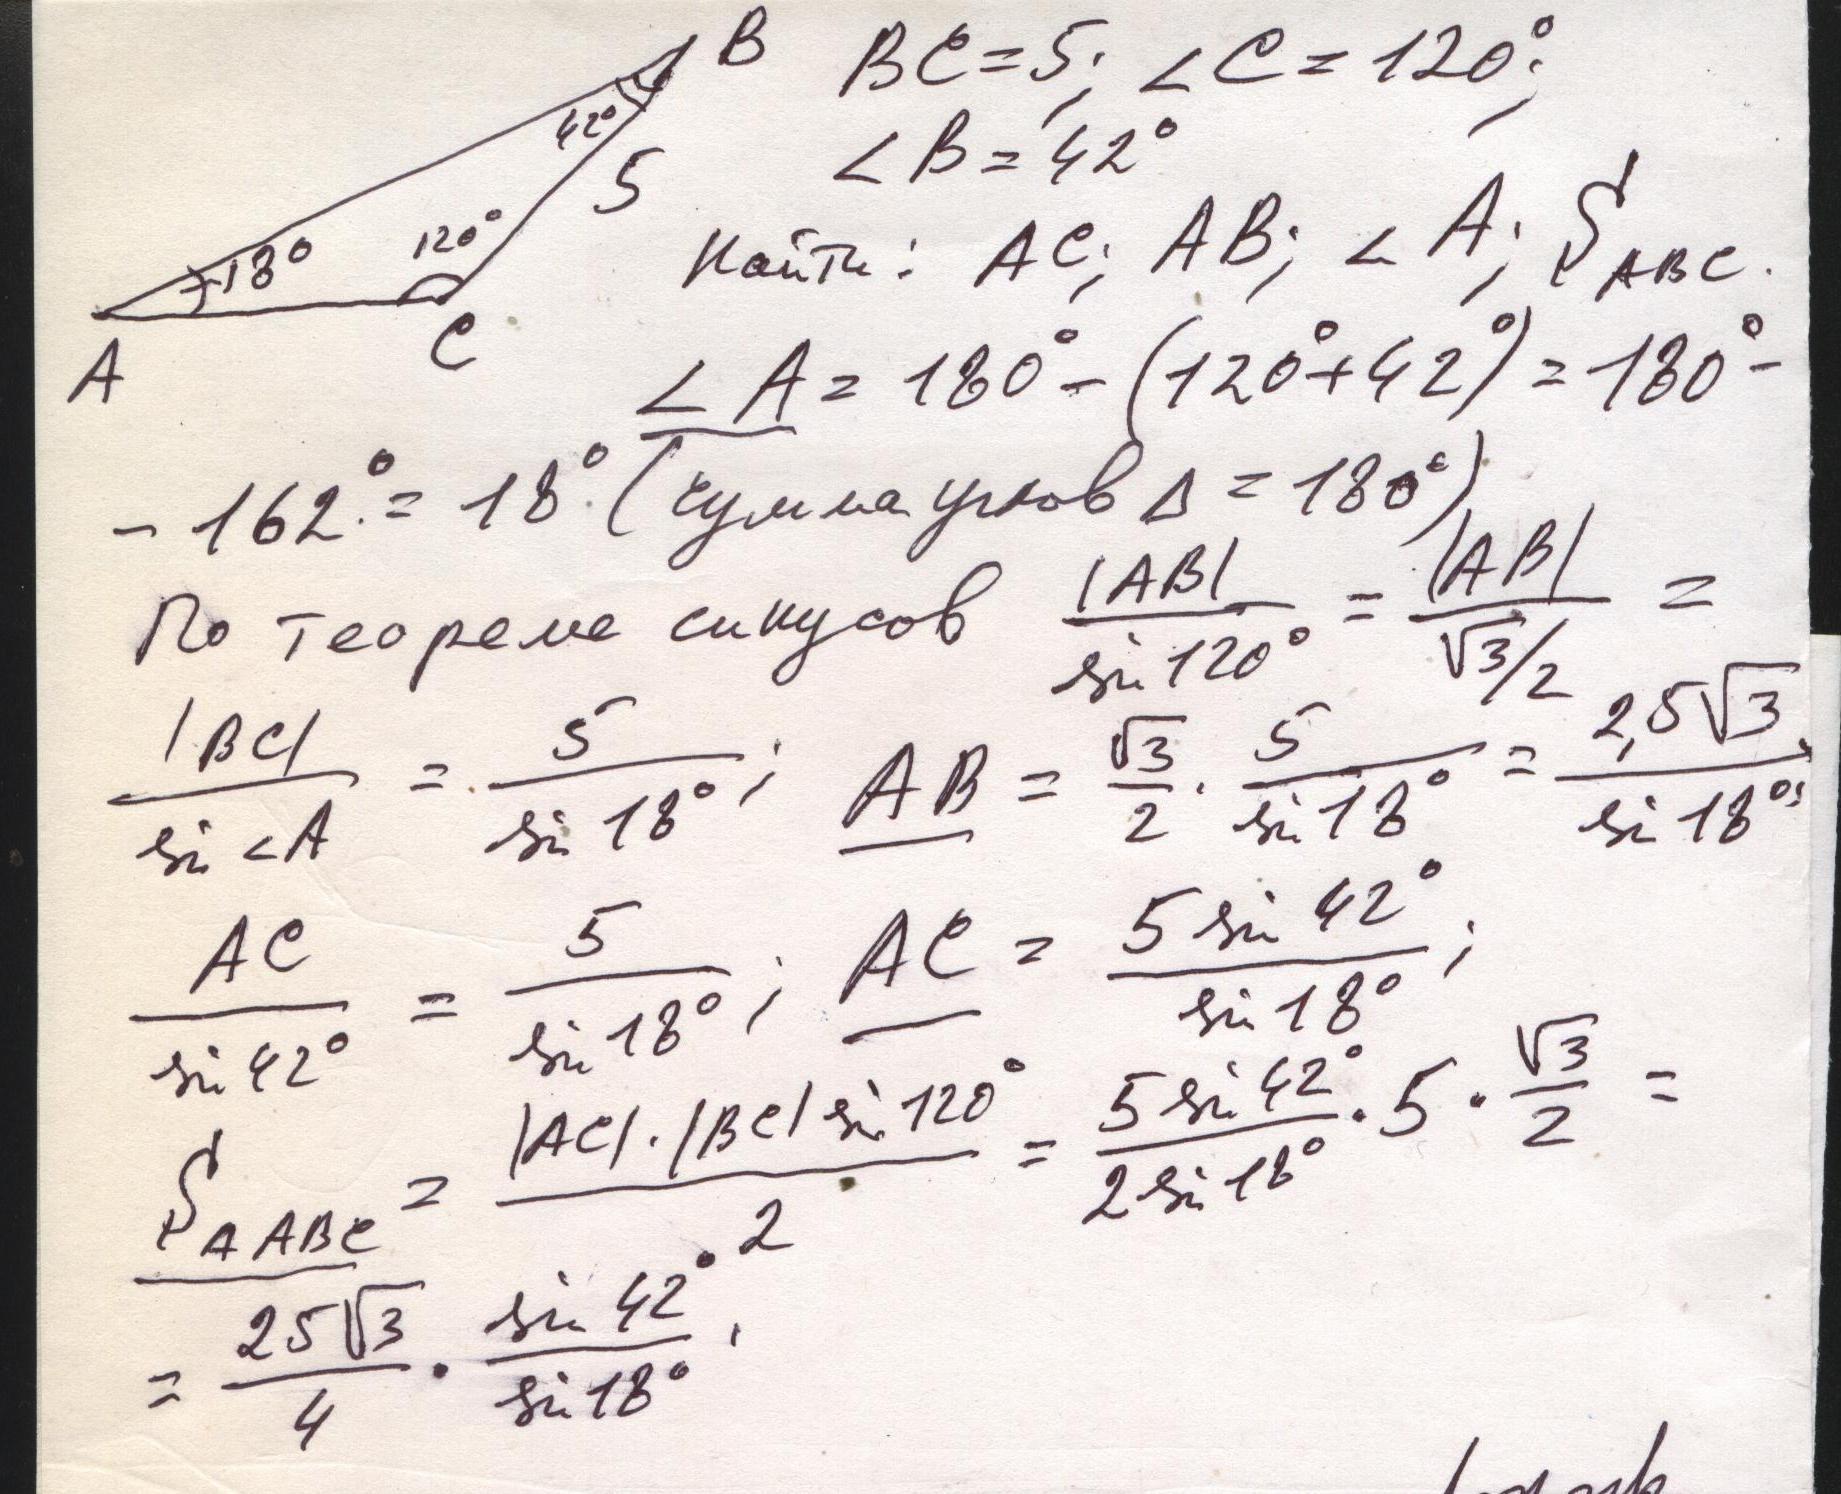 B BC = 5; ∠C = 120°;
42° ∠B = 42°
5
18° 120° Найти: AC; AB; ∠A; S ABC.
A C
∠A = 180° - (120° + 42°) = 180° -
- 162° = 18° (сумма углов Δ = 180°)
По теореме синусов |AB| / sin 120° = |AB| / √3/2 =
|BC| / sin ∠A = 5 / sin 18°; AB = √3/2 · 5 / sin 18° = 2,5√3 / sin 18°;
AC / sin 42° = 5 / sin 18°; AC = 5 sin 42° / sin 18°;
S Δ ABC = |AC| · |BC| sin 120° / 2 = 5 sin 42° / 2 sin 18° · 5 · √3/2 =
= 25√3 / 4 · sin 42° / sin 18°.